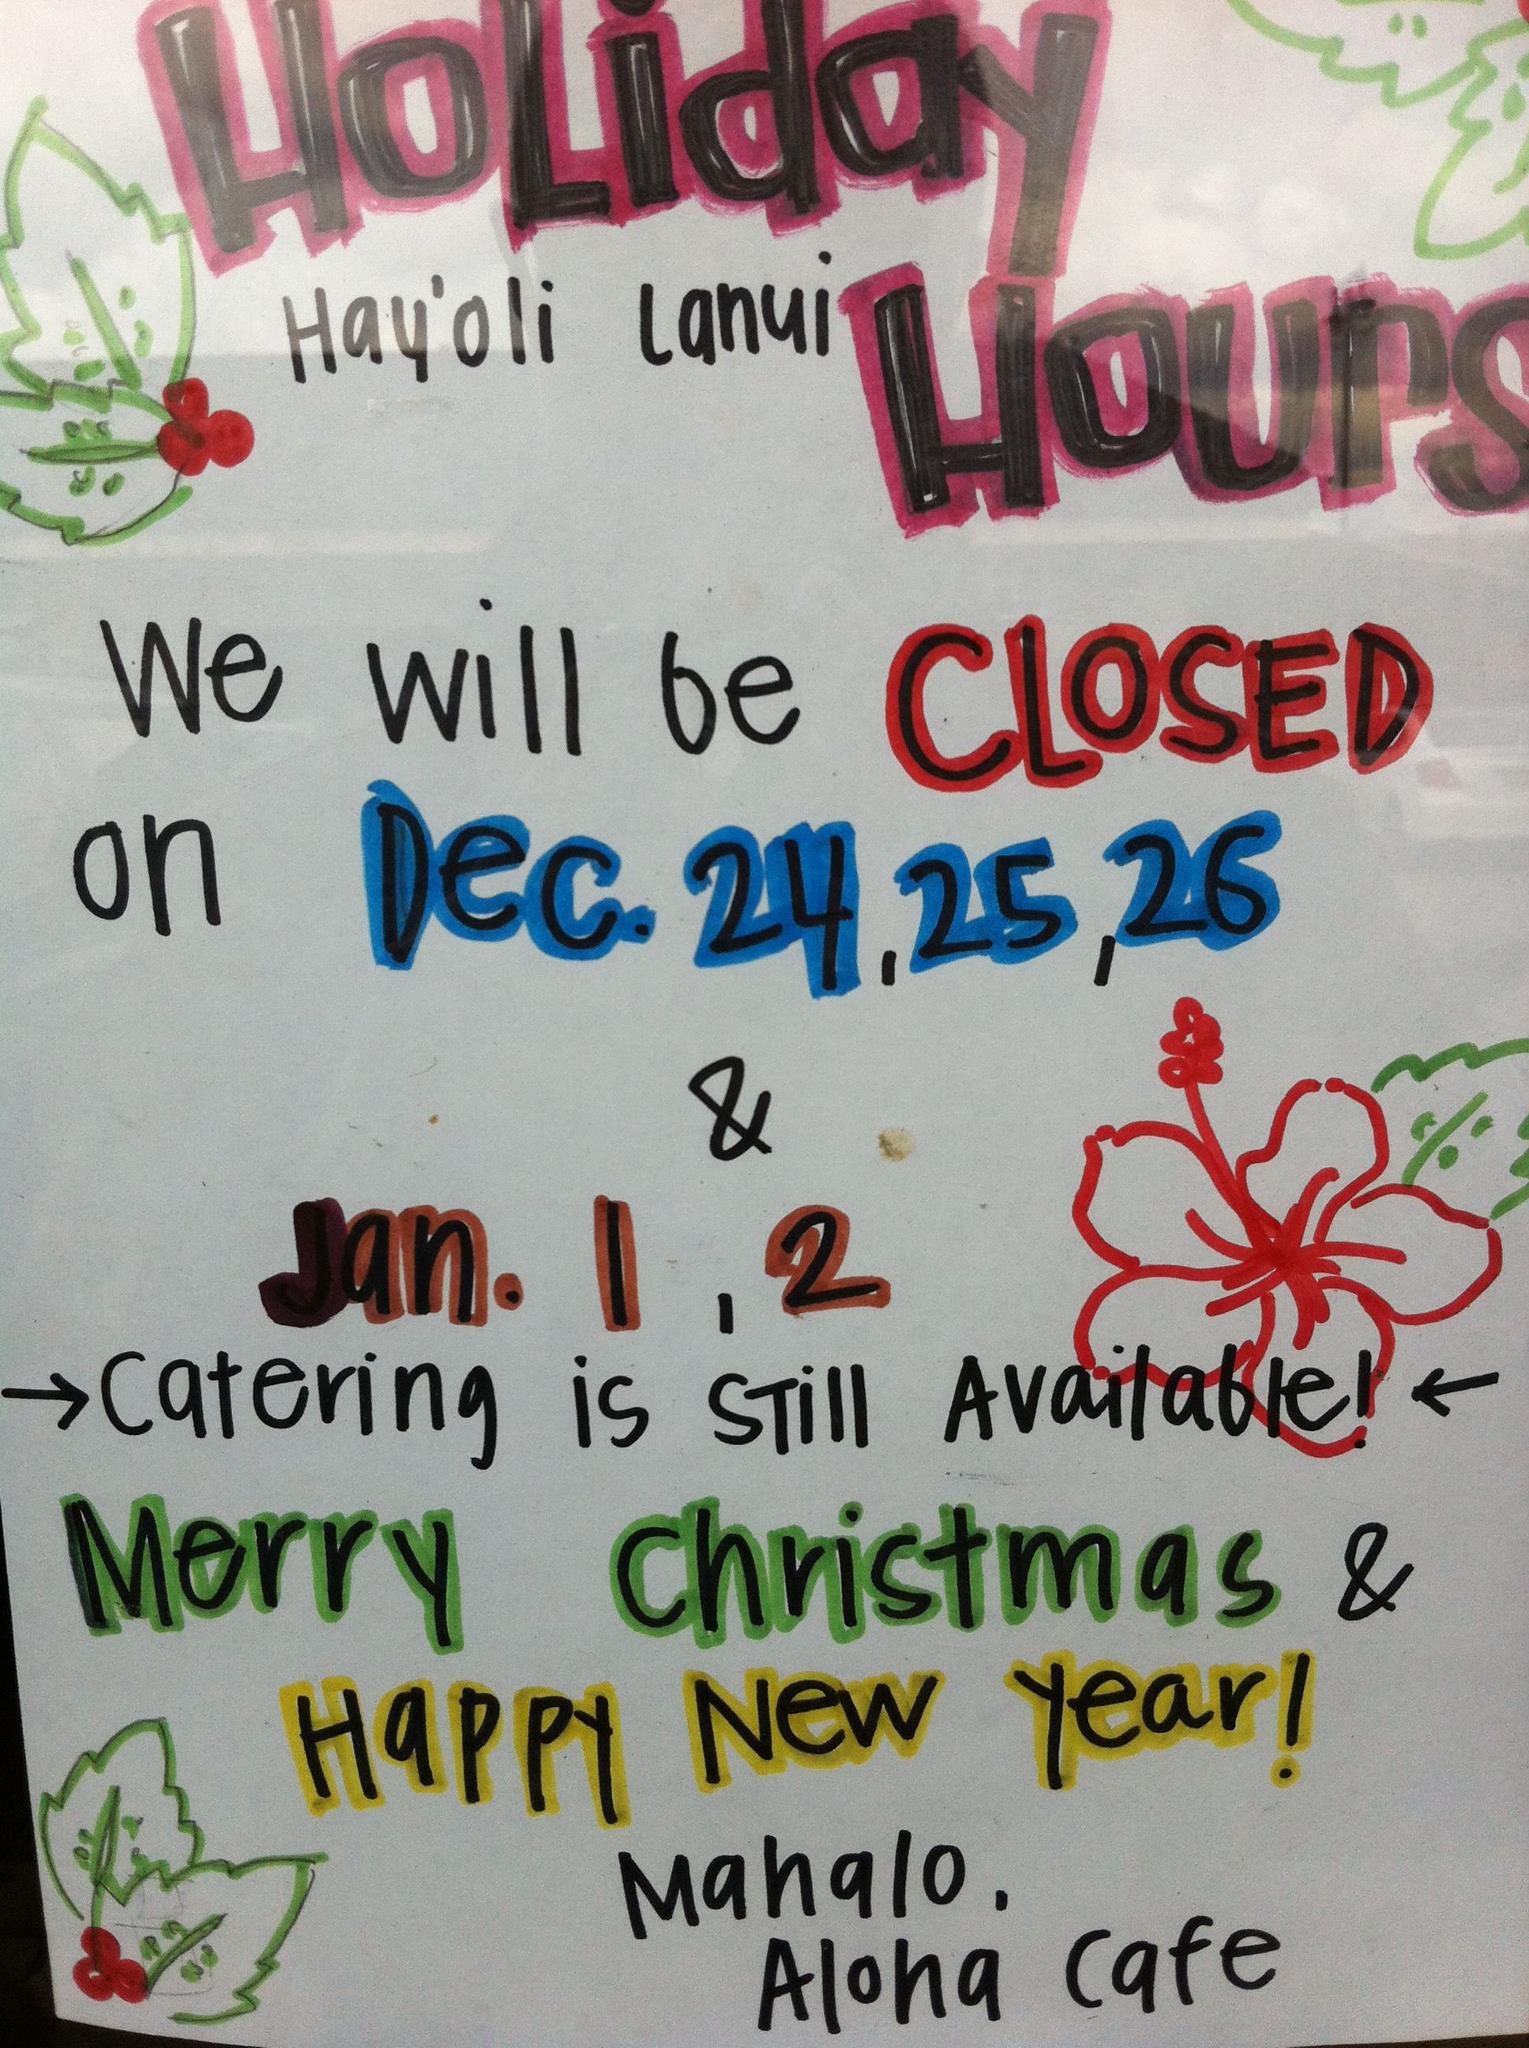 Holiday
Hay'oli Lanui Hours
We will be CLOSED
on Dec. 24, 25, 26
&
Jan. 1, 2
→Catering is Still Available!←
Merry Christmas &
Happy New Year!
Mahalo.
Aloha Cafe